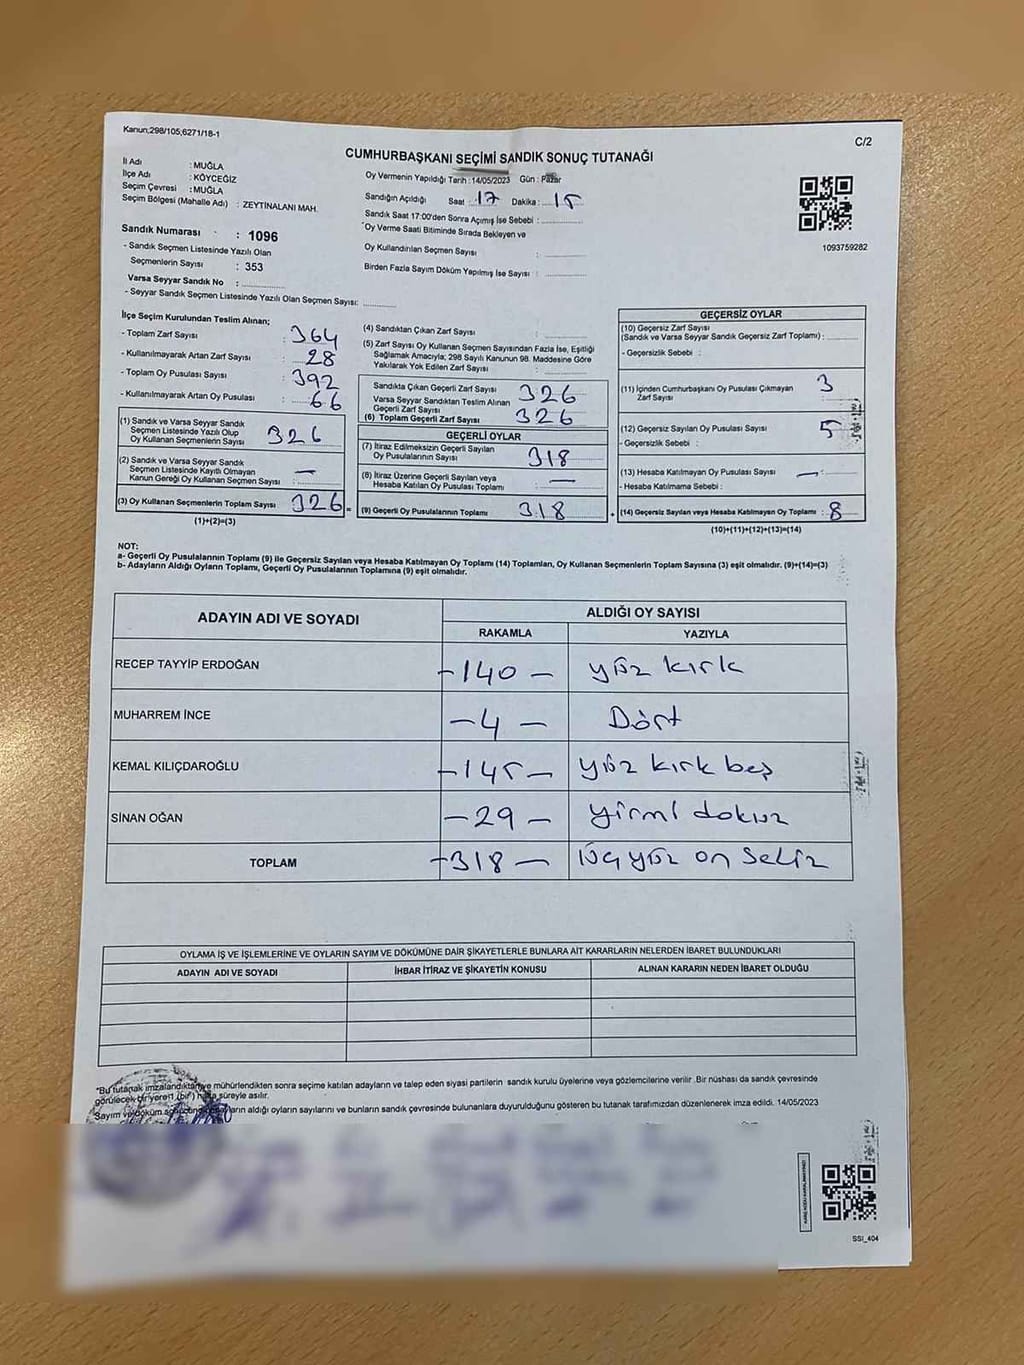 Kanun;298/105;6271/18-1
C/2
CUMHURBAŞKANI SEÇİMİ SANDIK SONUÇ TUTANAĞI
İl Adı : MUĞLA
İlçe Adı : KÖYCEĞİZ
Seçim Çevresi : MUĞLA
Seçim Bölgesi (Mahalle Adı) : ZEYTİNALANI MAH.
Sandık Numarası : 1096
- Sandık Seçmen Listesinde Yazılı Olan
Seçmenlerin Sayısı : 353
Varsa Seyyar Sandık No :
- Seyyar Sandık Seçmen Listesinde Yazılı Olan Seçmen Sayısı:
Oy Vermenin Yapıldığı Tarih : 14/05/2023 Gün : Pazar
Sandığın Açıldığı Saat 17 Dakika : 15
Sandık Saat 17:00'den Sonra Açmış İse Sebebi :
Oy Verme Saati Bitiminde Sırada Bekleyen ve
Oy Kullandırılan Seçmen Sayısı :
Birden Fazla Sayım Döküm Yapılmış İse Sayısı :
1093759282
İlçe Seçim Kurulundan Teslim Alınan;
- Toplam Zarf Sayısı : 364
- Kullanılmayarak Artan Zarf Sayısı : 28
- Toplam Oy Pusulası Sayısı : 392
- Kullanılmayarak Artan Oy Pusulası : 66
(1) Sandık ve Varsa Seyyar Sandık
Seçmen Listesinde Yazılı Olup
Oy Kullanan Seçmenlerin Sayısı : 326
(2) Sandık ve Varsa Seyyar Sandık
Seçmen Listesinde Kayıtlı Olmayan
Kanun Gereği Oy Kullanan Seçmen Sayısı : —
(3) Oy Kullanan Seçmenlerin Toplam Sayısı : 326 =
(1)+(2)=(3)
(4) Sandıktan Çıkan Zarf Sayısı :
(5) Zarf Sayısı Oy Kullanan Seçmen Sayısından Fazla İse, Eşitliği
Sağlamak Amacıyla; 298 Sayılı Kanunun 98. Maddesine Göre
Yakılarak Yok Edilen Zarf Sayısı :
Sandıkta Çıkan Geçerli Zarf Sayısı : 326
Varsa Seyyar Sandıktan Teslim Alınan
Geçerli Zarf Sayısı :
(6) Toplam Geçerli Zarf Sayısı : 326
GEÇERLİ OYLAR
(7) İtiraz Edilmeksizin Geçerli Sayılan
Oy Pusulalarının Sayısı : 318
(8) İtiraz Üzerine Geçerli Sayılan veya
Hesaba Katılan Oy Pusulası Toplamı : —
(9) Geçerli Oy Pusulalarının Toplamı : 318 +
GEÇERSİZ OYLAR
(10) Geçersiz Zarf Sayısı
(Sandık ve Varsa Seyyar Sandık Geçersiz Zarf Toplamı) :
- Geçersizlik Sebebi :
(11) İçinden Cumhurbaşkanı Oy Pusulası Çıkmayan 3
Zarf Sayısı
(12) Geçersiz Sayılan Oy Pusulası Sayısı : 5
- Geçersizlik Sebebi :
(13) Hesaba Katılmayan Oy Pusulası Sayısı : —
- Hesaba Katılmama Sebebi :
(14) Geçersiz Sayılan veya Hesaba Katılmayan Oy Toplamı : 8
(10)+(11)+(12)+(13)=(14)
NOT:
a- Geçerli Oy Pusulalarının Toplamı (9) ile Geçersiz Sayılan veya Hesaba Katılmayan Oy Toplamı (14) Toplamları, Oy Kullanan Seçmenlerin Toplam Sayısına (3) eşit olmalıdır. (9)+(14)=(3)
b- Adayların Aldığı Oyların Toplamı, Geçerli Oy Pusulalarının Toplamına (9) eşit olmalıdır.
ADAYIN ADI VE SOYADI ALDIĞI OY SAYISI
RAKAMLA YAZIYLA
RECEP TAYYİP ERDOĞAN -140- yüz kırk
MUHARREM İNCE -4- Dört
KEMAL KILIÇDAROĞLU -145- yüz kırk beş
SİNAN OĞAN -29- yirmi dokuz
TOPLAM -318- üç yüz on sekiz
OYLAMA İŞ VE İŞLEMLERİNE VE OYLARIN SAYIM VE DÖKÜMÜNE DAİR ŞİKAYETLERLE BUNLARA AİT KARARLARIN NELERDEN İBARET BULUNDUKLARI
ADAYIN ADI VE SOYADI İHBAR İTİRAZ VE ŞİKAYETİN KONUSU ALINAN KARARIN NEDEN İBARET OLDUĞU
*Bu tutanak imzalandıktan ve mühürlendikten sonra seçime katılan adayların ve talep eden siyasi partilerin sandık kurulu üyelerine veya gözlemcilerine verilir. Bir nüshası da sandık çevresinde
görülecek bir yere 1 (bir) hafta süreyle asılır.
Sayım ve döküm aldığı oyların sayılarını ve bunların sandık çevresinde bulunanlara duyurulduğunu gösteren bu tutanak tarafımızdan düzenlenerek imza edildi. 14/05/2023
SSI_404